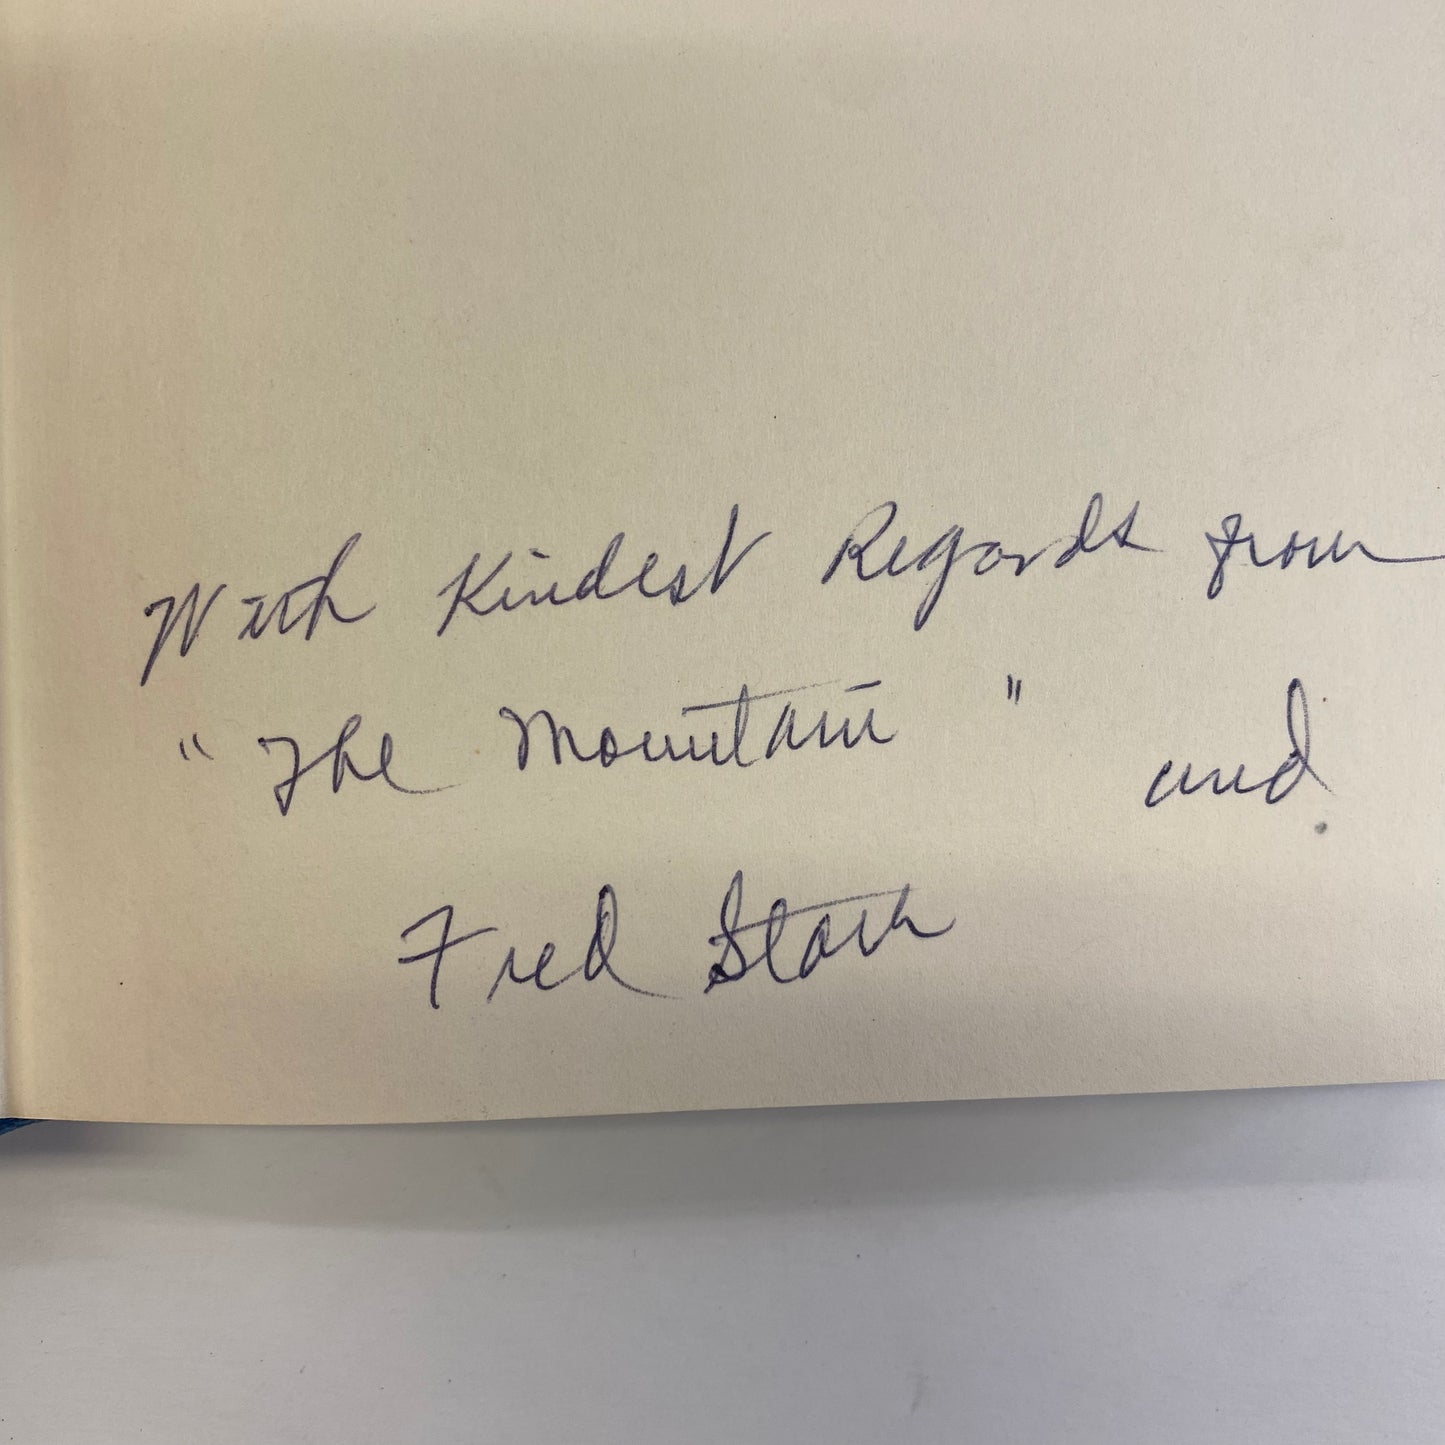 With Kindest Regards from
"The Mountain" and
Fred Starr